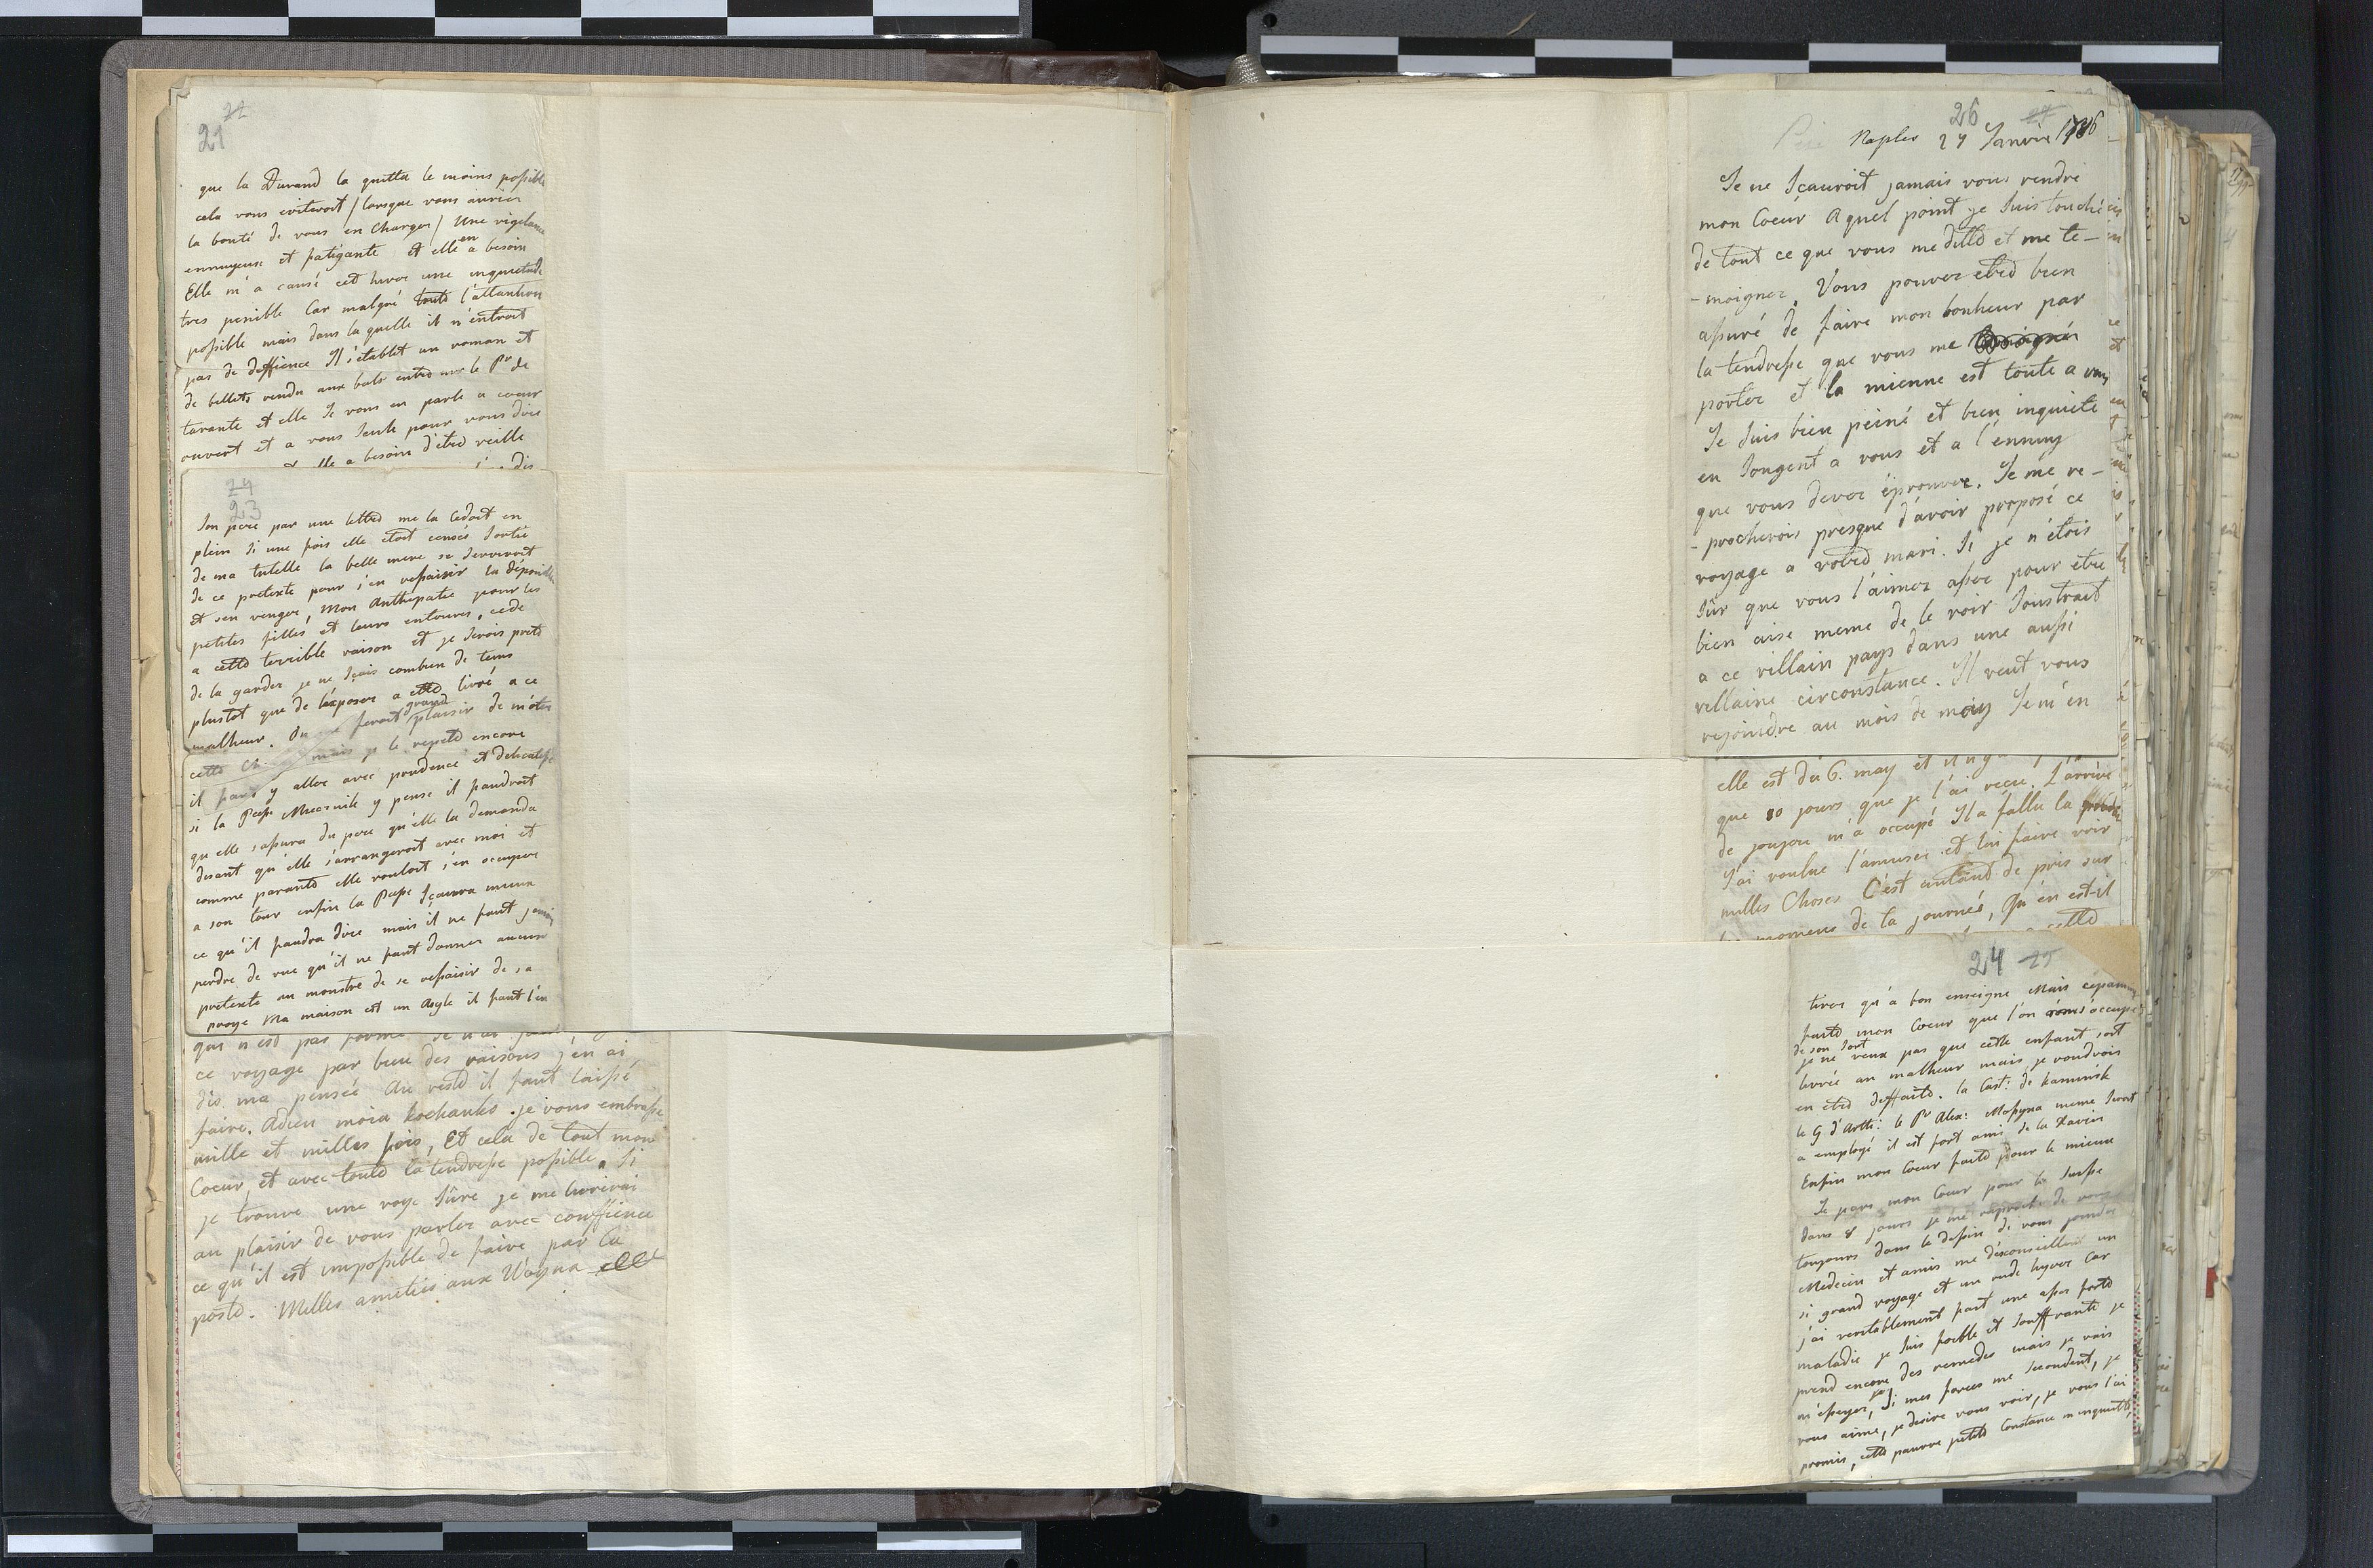 22
21
que la Durand la quitta le moins possible
cela vous eviteroit / lorsque vous auriez
la bonté de vous en charger / Une vigelance
ennuyeuse et fatigante et elle en a besoin
Elle m'a causé cet hiver une inquietude
tres penible Car malgré toute l'attantion
possible mais dans la quelle il n'entroit
pas de deffience Il s'établit un roman et
de billets rendu aux bals entre le Pr de
tarante et elle Je vous en parle a coeur
ouvert et a vous seule pour vous dire
elle a besoin d'etre veille
24
23
Son pere par une lettre me la Cedoit en
plein si une fois elle etoit censée sortie
de ma tutelle la belle mere se serviroit
de ce pretexte pour s'en resaisir la dépouiller
et s'en venger, Mon Anthipatie pour les
petites filles et leurs entoures, cede
a cette terrible raison et je serois prete
de la garder je ne sçais combien de tems
plustot que de l'exposer a etre livré a ce
malheur. On me feroit grand plaisir de m'oter
cette mais je le repete encore
il faut y aller avec prudence et delicatesse
si la Psse Mecznik y pense il faudroit
qu'elle s'assura du pere qu'elle la demanda
disant qu'elle s'arrangeroit avec moi et
comme parante elle vouloit s'en occuper
a son tour enfin la Psse sçaura mieux
ce qu'il faudra dire mais il ne faut jamais
perdre de vue qu'il ne faut donner aucun
pretexte au monstre de se resaisir de sa
proye Ma maison est un Asyle il faut l'en
qui n'est pas
ce voyage par bien des raisons j'en ai
dis ma pensée Au reste il faut laissé
faire. Adieu moia kochanko. je vous embrasse
mille et milles fois, Et cela de tout mon
Coeur, et avec toute la tendresse possible. Si
je trouve une voye sûre je me livrerai
au plaisir de vous parler avec conffience
ce qu'il est impossible de faire par la
poste. Milles amitiés aux Woyna
26 27
Naples 27 Janvie 1786
Je ne sçauroit jamais vous rendre
mon Coeur Aquel point je suis touché
de tout ce que vous me ditte et me te-
-moignez. Vous pouvez etre bien
assuré de faire mon bonheur par
la tendresse que vous me
porter et la mienne est toute a vous
Je suis bien peiné et bien inquiete
en songent a vous et a l'ennuy
que vous devez éprouver. Je me re-
-procherois presque d'avoir proposé ce
voyage a votre mari. Si je n'étois
sûr que vous l'aimez assez pour etre
bien aise meme de le voir soustrait
a ce villain pays dans une aussi
villaine circonstance. Il veut vous
rejoindre au mois de may Je m'en
elle est du 6. may et il n'y
que 10 jours que je l'ai recu. L'arrive
de joujou m'a occupé Il a fallu la
J'ai voulue l'amuser et lui faire voir
milles Choses C'est autant de pris sur
momens de la journée, Qu'en est-il
24 25
tirer qu'a bon enseigne Mais
faite mon Coeur que l'on s'occupe
de son sort
je ne veux pas que cette enfant soit
livrée au malheur mais je voudrois
en etre deffaite. la Cast: de kaminsk
le G d'Artti: le Pr Alex: Massyna meme seroit
a employé il est fort ami de la Xavier
Enfin mon Coeur faite pour le mieux
Je pars mon Coeur pour la Suisse
dans 8 jours je me raproche de vous
toujours dans le dessin de vous joindre
Medecin et amis me déconseillent un
si grand voyage et un rude hyver Car
j'ai veritablement fait une assez forte
maladie je suis foible et souffrante je
prend encore des remedes mais je vais
m'essayer, Si mes forces me secondent, je
vous aime, je desire vous voir, je vous l'ai
promis, cette pauvre petite Constance m'inquiette